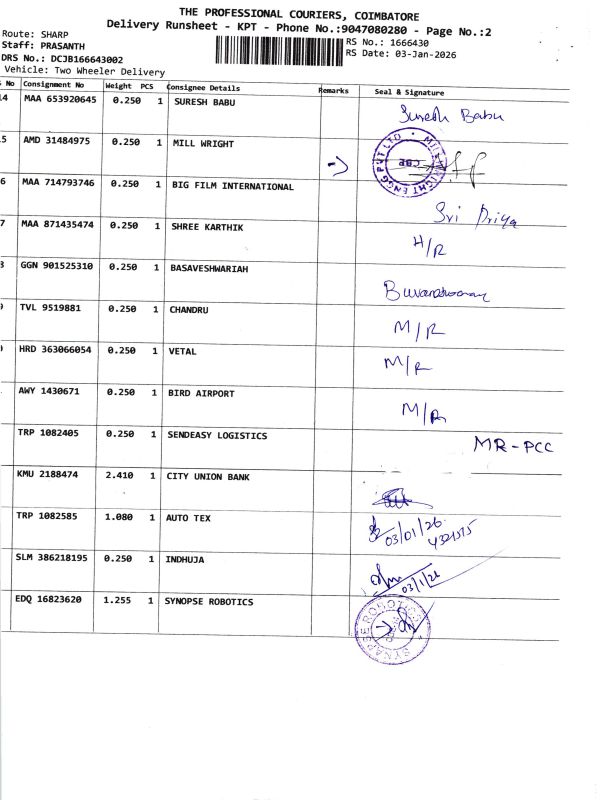 THE PROFESSIONAL COURIERS, COIMBATORE
Delivery Runsheet - KPT - Phone No.:9047080280 - Page No.:2
Route: SHARP
RS No.: 1666430
Staff: PRASANTH
RS Date: 03-Jan-2026
DRS No.: DCJB166643002
Vehicle: Two Wheeler Delivery
No Consignment No Weight PCS Consignee Details Remarks Seal & Signature
14 MAA 653920645 0.250 1 SURESH BABU Suresh Babu
5 AMD 31484975 0.250 1 MILL WRIGHT
CBE
6 MAA 714793746 0.250 1 BIG FILM INTERNATIONAL Sri Priya
7 MAA 871435474 0.250 1 SHREE KARTHIK H/R
GGN 901525310 0.250 1 BASAVESHWARIAH
TVL 9519881 0.250 1 CHANDRU M/R
HRD 363066054 0.250 1 VETAL M/R
AWY 1430671 0.250 1 BIRD AIRPORT M/R
TRP 1082405 0.250 1 SENDEASY LOGISTICS MR-PCC
KMU 2188474 2.410 1 CITY UNION BANK
TRP 1082585 1.080 1 AUTO TEX 03/01/26
SLM 386218195 0.250 1 INDHUJA 03/1/26
EDQ 16823620 1.255 1 SYNOPSE ROBOTICS
SYNAPSE ROBOTICS